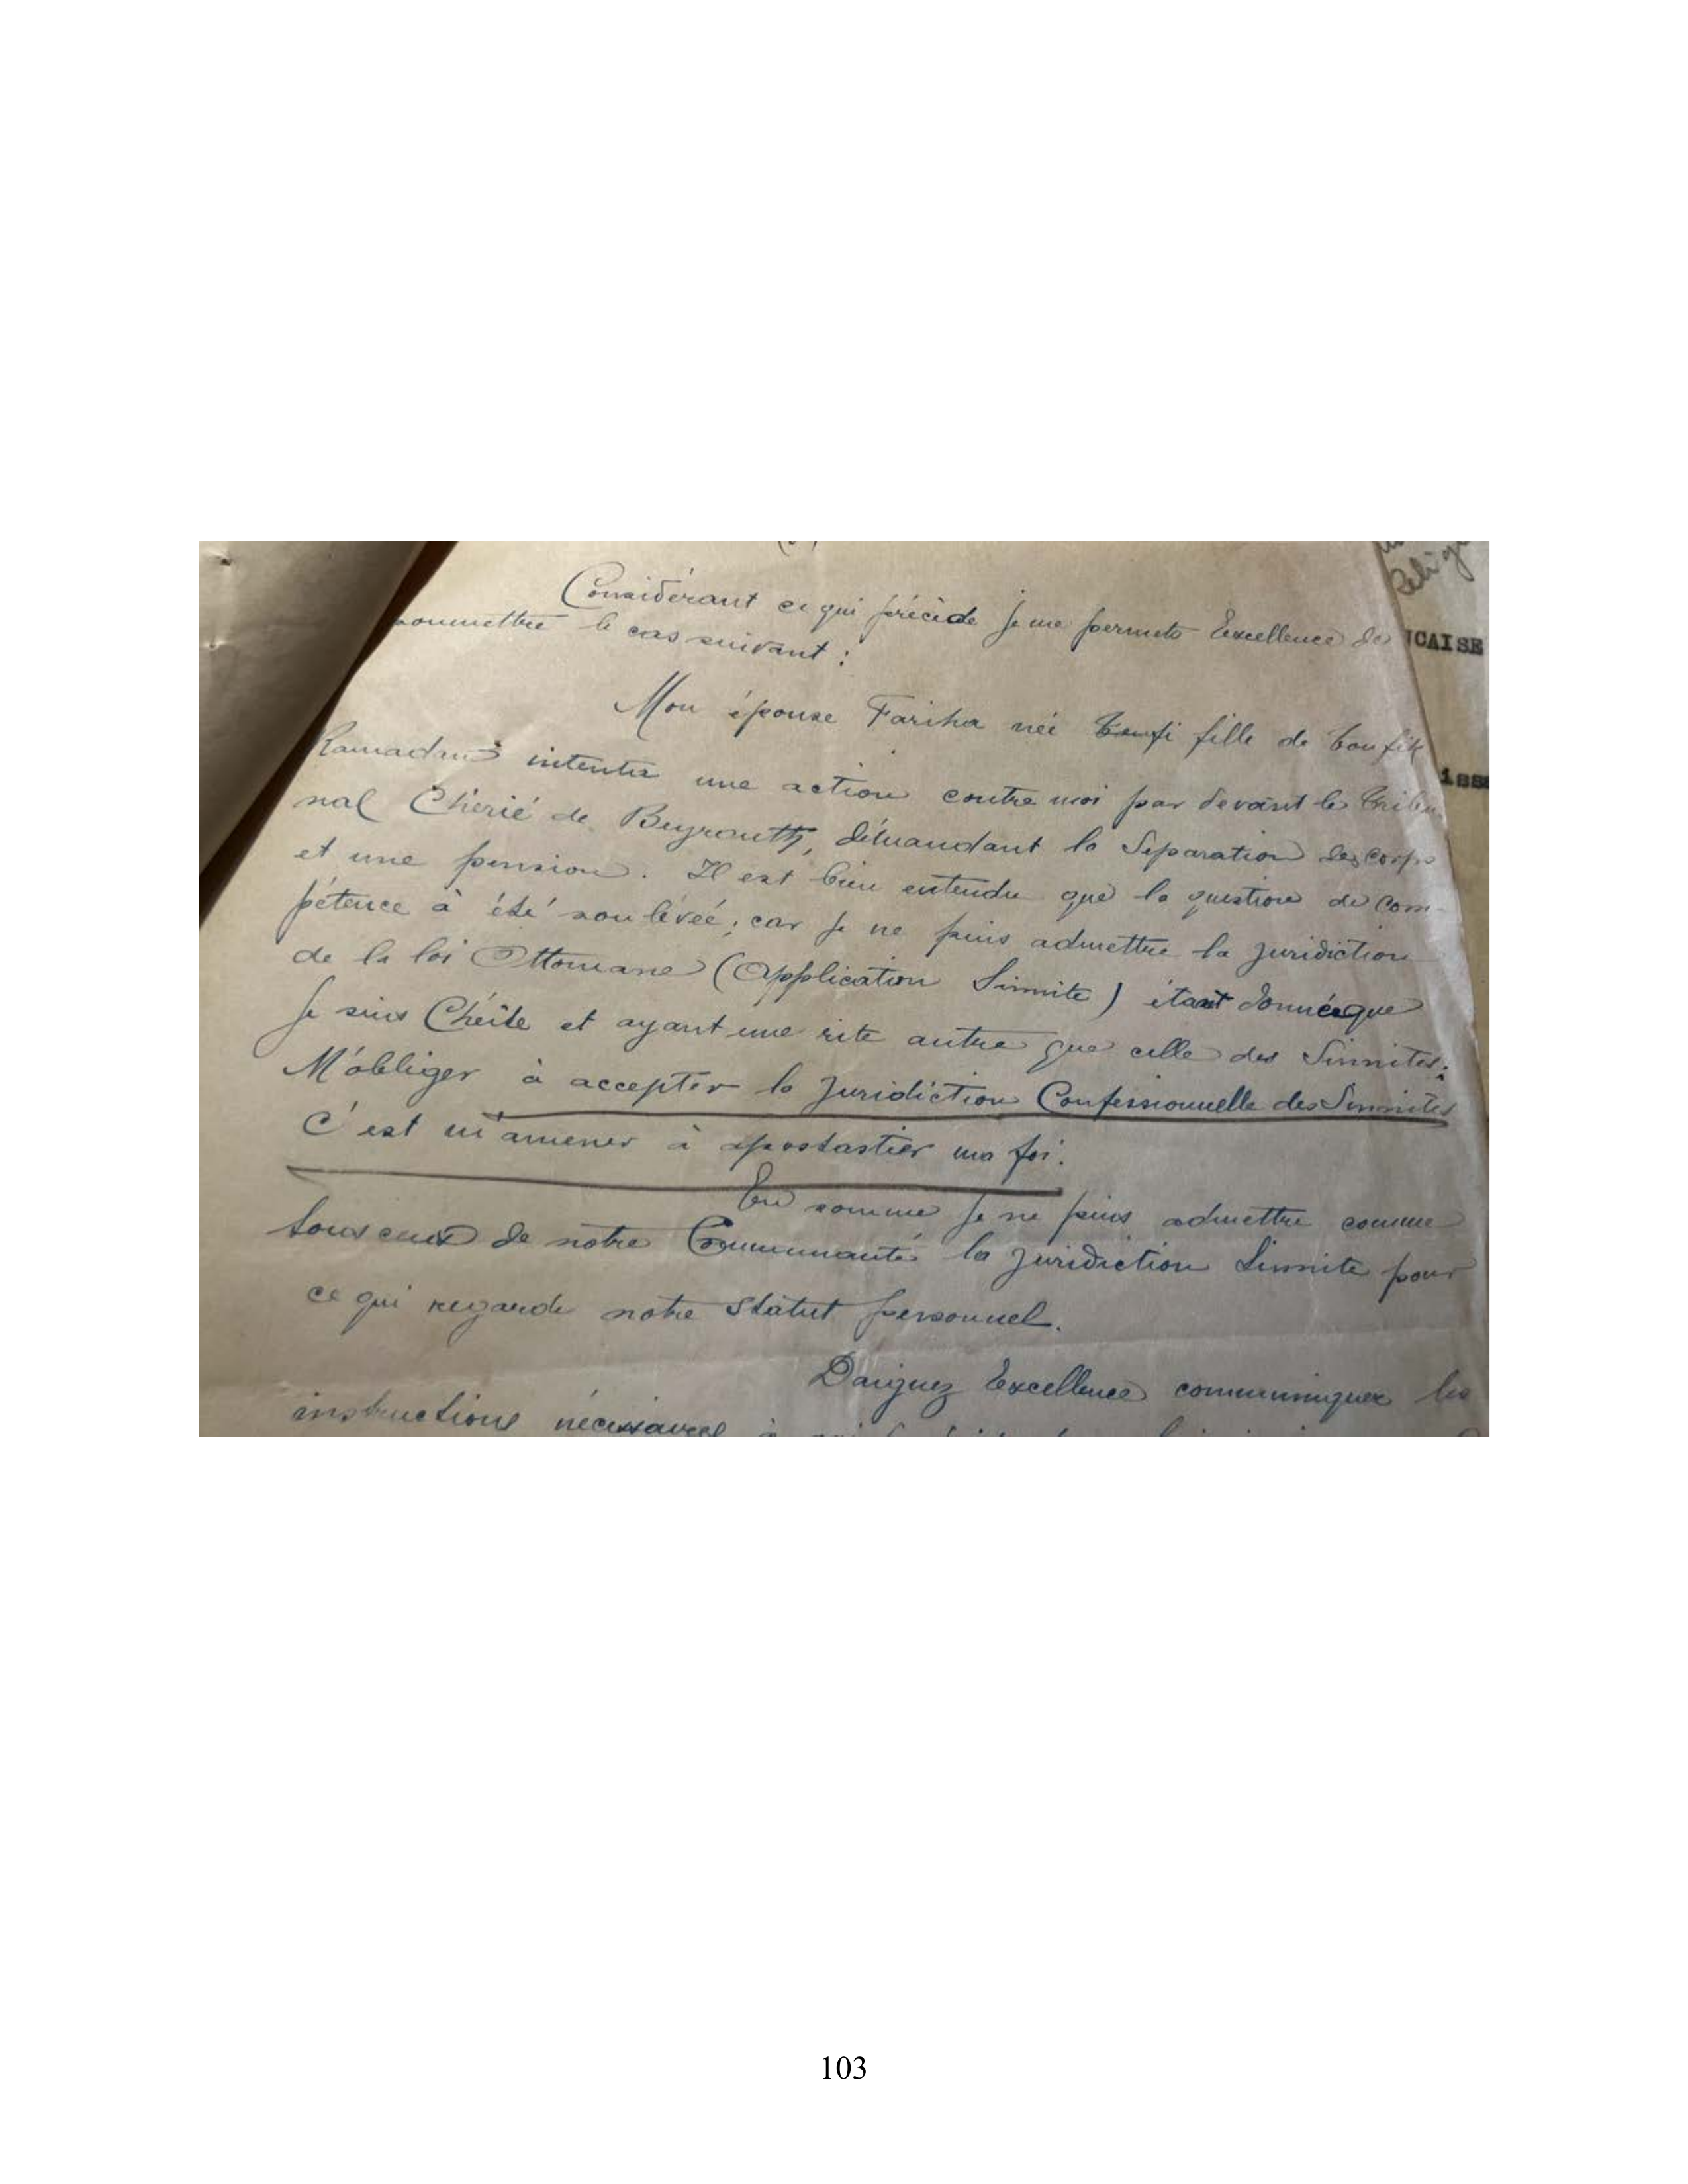 Considérant ce qui précède je me permets Excellence de
soumettre le cas suivant :
Mon épouse Fariha née fille de Toufik
Ramadan intente une action contre moi par devant le Tribu
nal Chérié de Beyrouth, démandant la Séparation des corps
et une pension. Il est bien entendu que la question de com-
pétence à été soulévéé; car je ne puis admettre la juridiction
de la loi Ottomane (Application Sinnite) étant donnéeque
Je suis Chéite et ayant une rite autre que celle des Sinnites;
M'obliger à accepter la Juridiction Confessionnelle des Sinnites
C'est m'amener à apostastier ma foi.
En somme je ne puis admettre comme
tous ceux de notre Communauté la juridiction Sinnite pour
ce qui regarde notre Statut personnel.
Daignez Excellence communiquer les
instructions nécessaires à
ÇAISE
isse
103